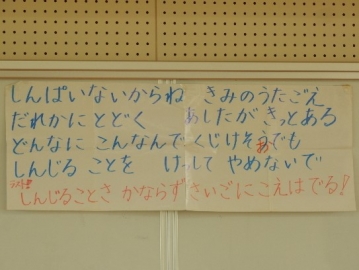 しんぱいないからね きみのうたごえ
だれかにとどく あしたが、きっとある
どんなに こんなんで くじけそうでも
しんじる ことを けっして やめないで
しんじることさ かならず さいごにこえはでる!